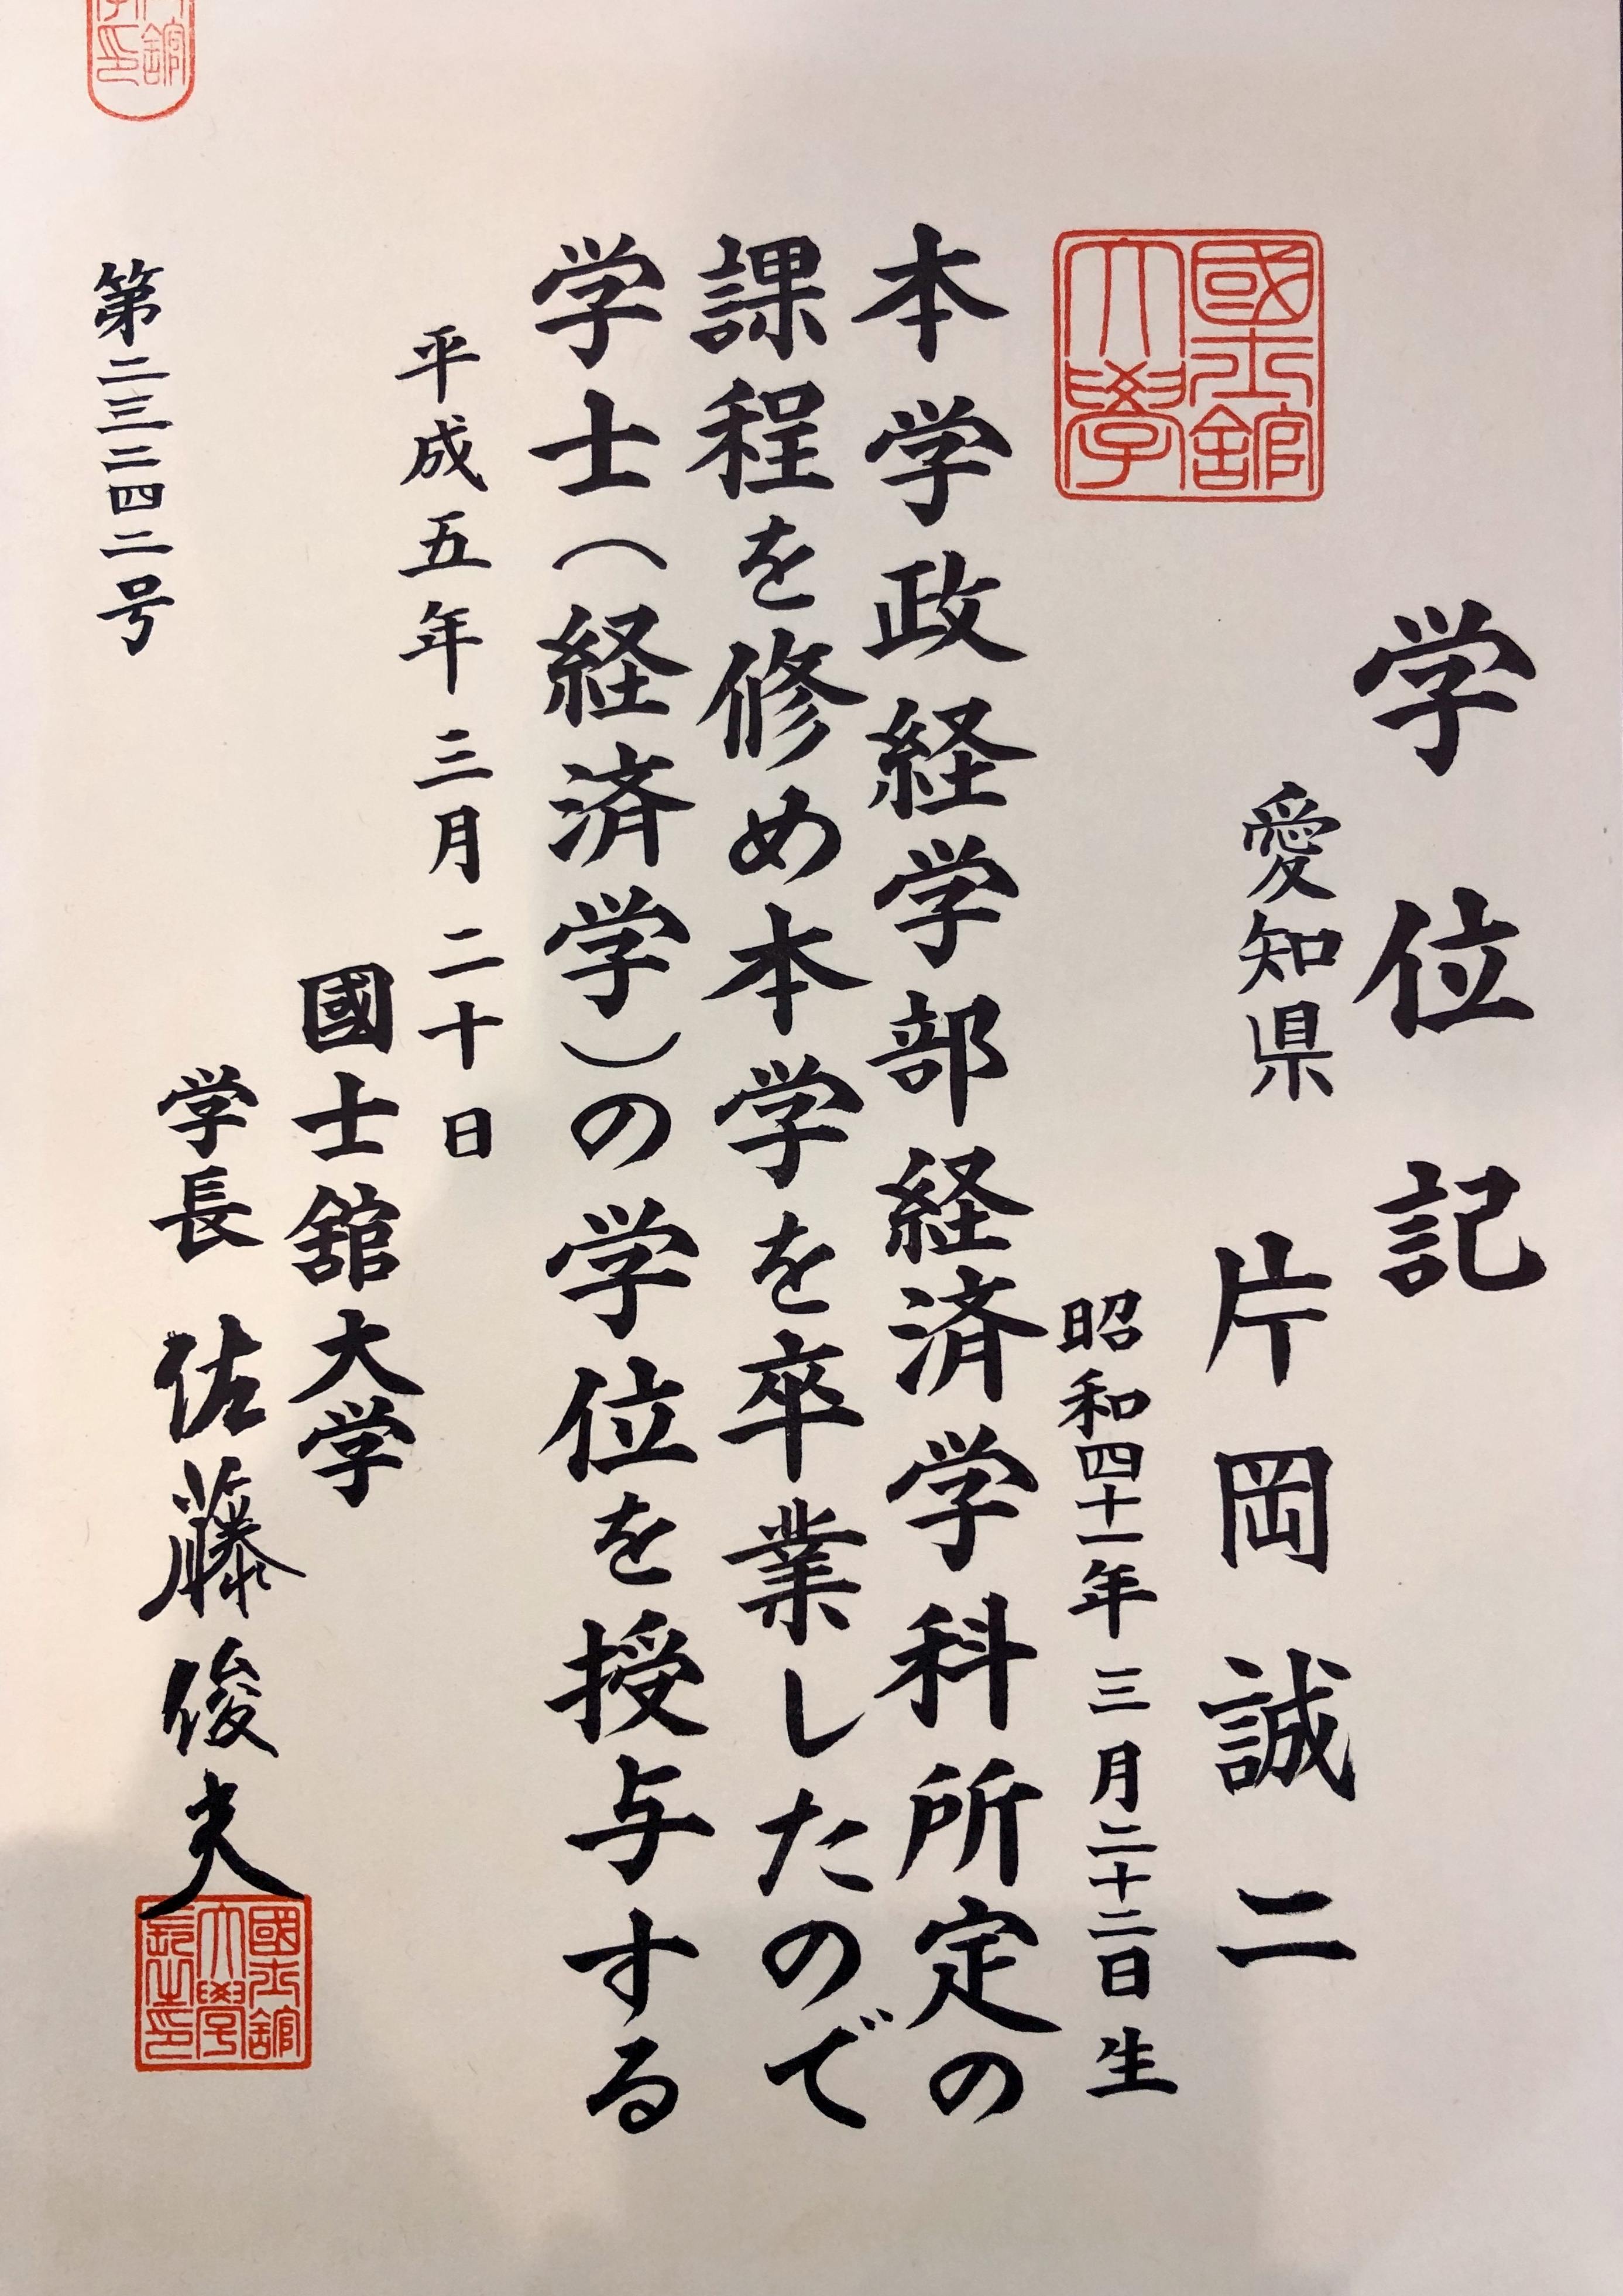 学位記
愛知県 片岡誠二
昭和四十一年三月二十二日生
國士舘大學
本学政経学部経済学科所定の
課程を修め本学を卒業したので
学士(経済学)の学位を授与する
平成五年三月二十日
國士舘大学
学長 佐藤俊夫
國士舘大學長之印
第二三二四二号